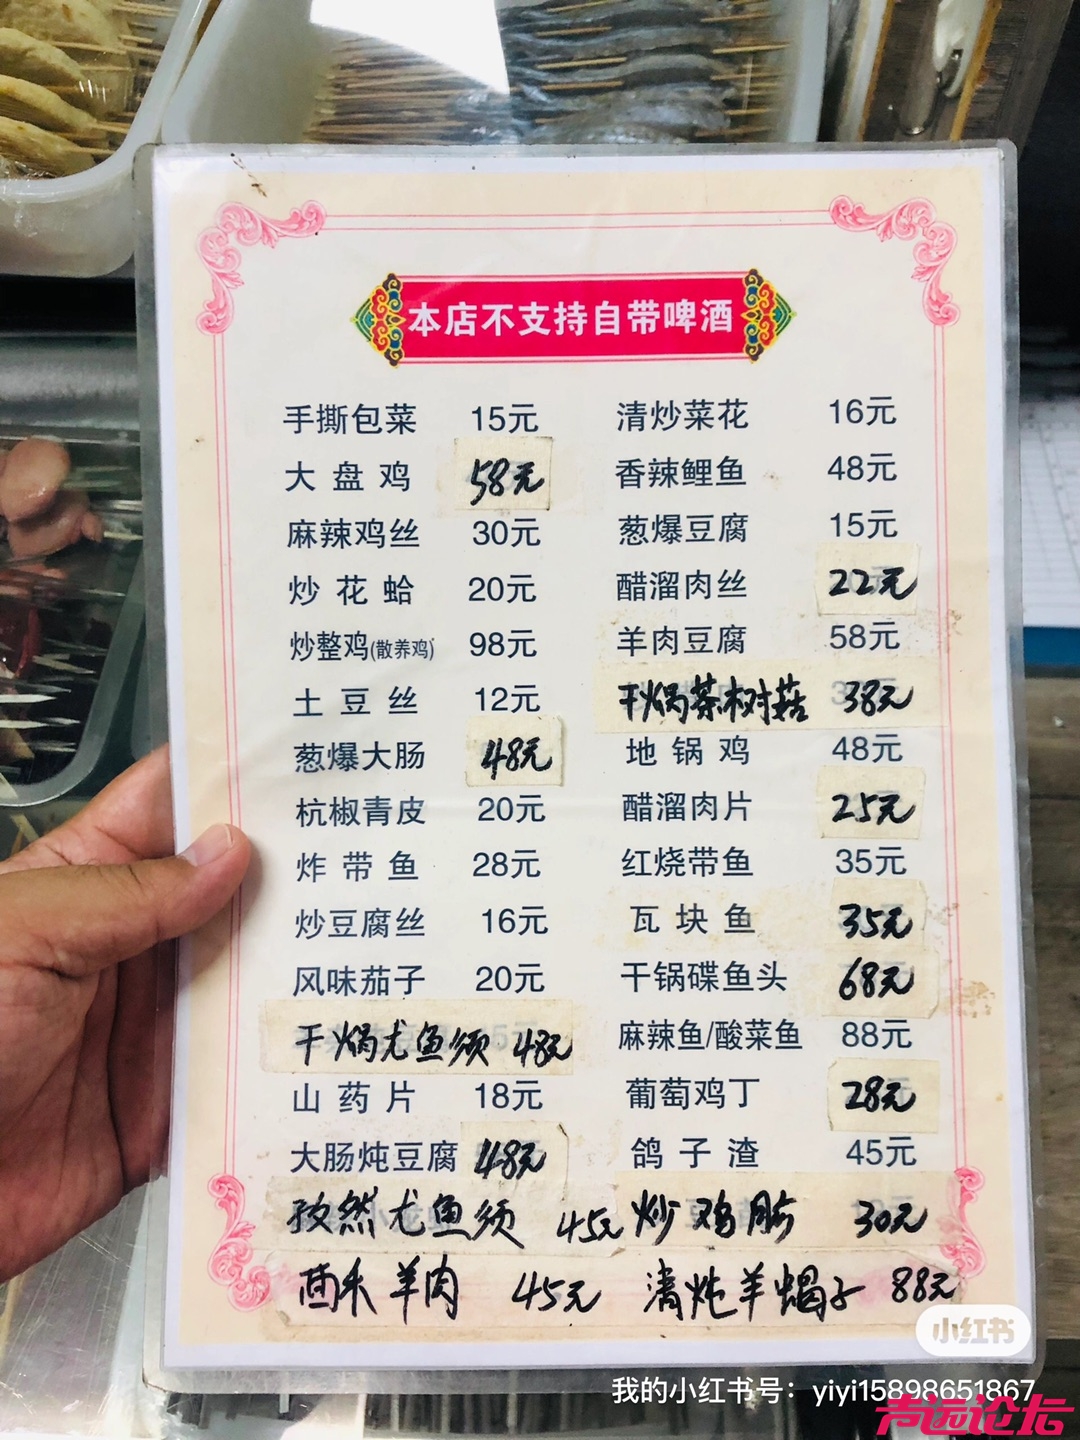 本店不支持自带啤酒
手撕包菜 15元 清炒菜花 16元
大盘鸡 58元 香辣鲤鱼 48元
麻辣鸡丝 30元 葱爆豆腐 15元
炒花蛤 20元 醋溜肉丝 22元
炒整鸡(散养鸡) 98元 羊肉豆腐 58元
土豆丝 12元 干锅茶树菇 38元
葱爆大肠 48元 地锅鸡 48元
杭椒青皮 20元 醋溜肉片 25元
炸带鱼 28元 红烧带鱼 35元
炒豆腐丝 16元 瓦块鱼 35元
风味茄子 20元 干锅碟鱼头 68元
干锅尤鱼须 48元 麻辣鱼/酸菜鱼 88元
山药片 18元 葡萄鸡丁 28元
大肠炖豆腐 48元 鸽子渣 45元
孜然尤鱼须 45元 炒鸡胗 30元
羊肉 45元 清炖羊蝎子 88元
小红书
我的小红书号：yiyi15898651867
声远论坛